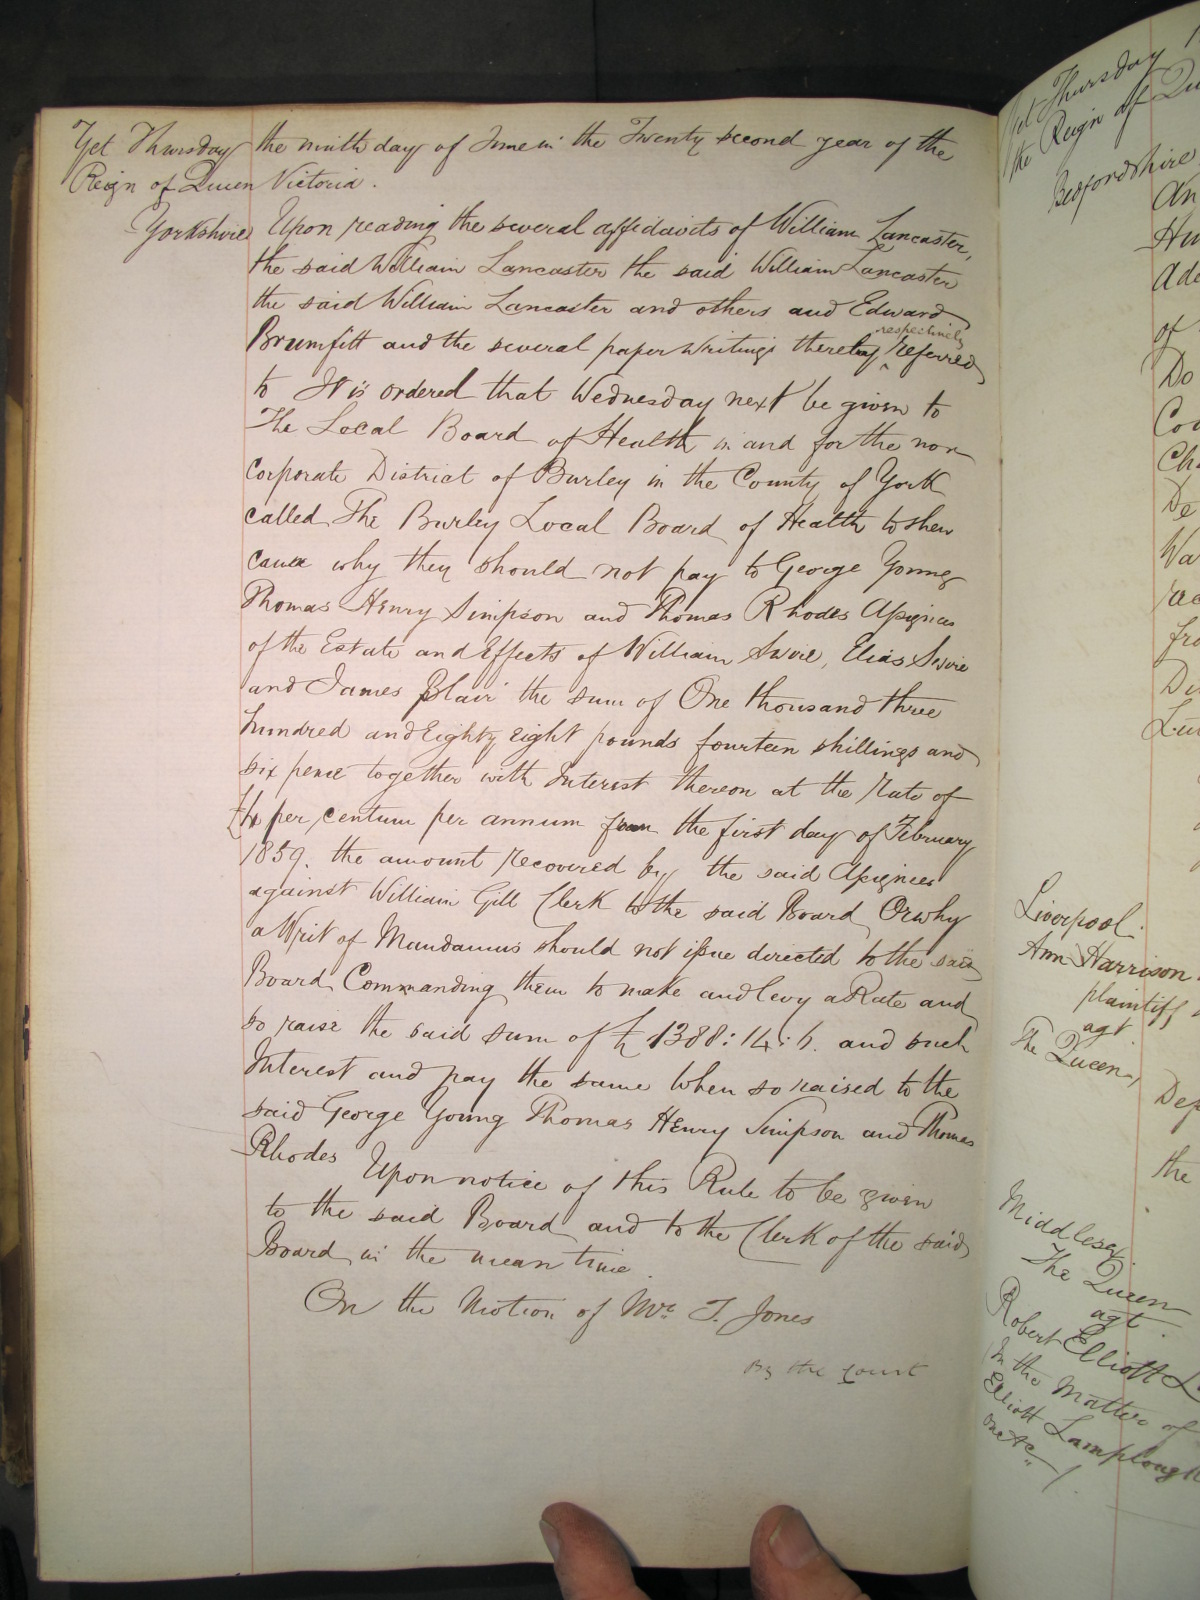 Yet Thursday the ninth day of June in the Twenty second year of the
Reign of Queen Victoria.
Yorkshire Upon reading the several affidavits of William Lancaster,
the said William Lancaster the said William Lancaster
the said William Lancaster and others and Edward
respectively
Brumfitt and the several paper writings thereby referred
to It is ordered that Wednesday next be given to
The Local Board of Health in and for the non
corporate District of Burley in the County of York
called The Burley Local Board of Health to shew
cause why they should not pay to George Young
Thomas Henry Simpson and Thomas Rhodes Assignees
of the Estate and Effects of William Swire, Elias Swire
and James Blair the sum of One thousand three
hundred and Eighty eight pounds fourteen shillings and
six pence together with Interest thereon at the rate of
per centum per annum from the first day of February
1859. the amount recovered by the said Assignees
against William Gill Clerk to the said Board Or why
a Writ of Mandamus should not issue directed to the said
Board Commanding them to make and levy a Rate and
so raise the said sum of £1388:14:6. and such
Interest and pay the same when so raised to the
said George Young Thomas Henry Simpson and Thomas
Rhodes Upon notice of this Rule to be given
to the said Board and to the Clerk of the said
Board in the mean time.
On the Motion of Mr. T. Jones
By the Court
Yet Thursday
the Reign of Qu
Bedfordshire
An
Hu
Ade
of
Do
Cou
Cha
De
Wa
fro
Liverpool.
Ann Harrison
plaintiff
agt
The Queen
Dep
the
Middlesex
The Queen
agt.
Robert Elliott L
In the Matter of
Elliott Lamplough
one &c